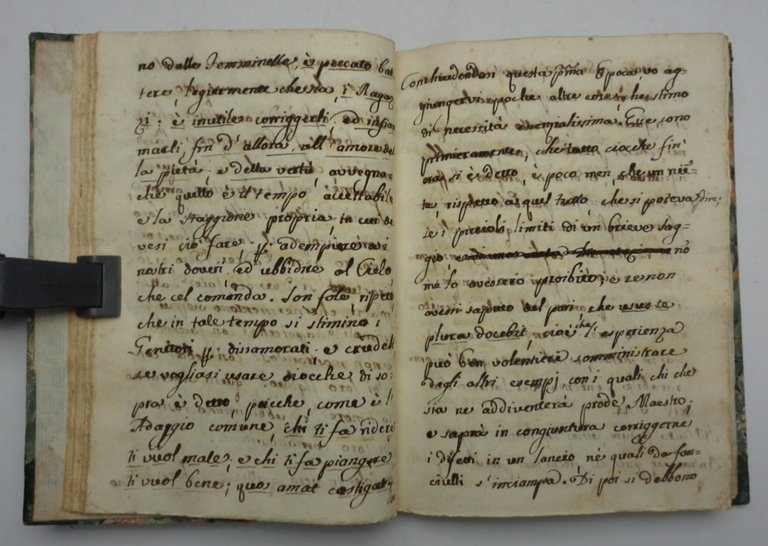 no dalle Femminelle, è peccato bat
tere, legiermente chessia, i Ragaz
zi; è inutile corriggerli, ed infiam
marli fin d'allora, all'amore del
la pietà, e della vertù, avvegna
che quello è il tempo accettabile
e la staggione propria, in cui de
vesi ciò fare, p. adempiere ai
nostri doveri, ed ubbidire al Cielo,
che cel comanda. Son fole ripeto
che in tale tempo si stimino i
Genitori p. disamorati, e crudeli
se vogliasi usare ciocche di so
pra è detto, poicche, come è l'
Adaggio comune, chi ti fa ridere
ti vuol male, e chi ti fa piangere
ti vuol bene; quos amat castigat
Conchiudendosi questa pma Epoca, vo ag-
giungervi poche altre cose, che stimo
di necessità essenzialissima. Esse sono
primieramente, che tutto ciocche fin'
ora si è detto, è poco men, che un nien
te, rispetto a quel tutto, che si poteva dire;
se i piccioli limiti di un brieve sag-
gio no
me lo avessero proibito; e se non
avessi saputo del pari, che usus te
plura docebit, cioè che l'esperienza
può ben volentieri somministrare
degli altri esempj, con i quali chi che
sia ne addiventerà prode Maestro,
e saprà in congiuntura corriggerne
i difetti in un sincero nè quali da fan-
ciulli s'inciampa. Di poi si debbono